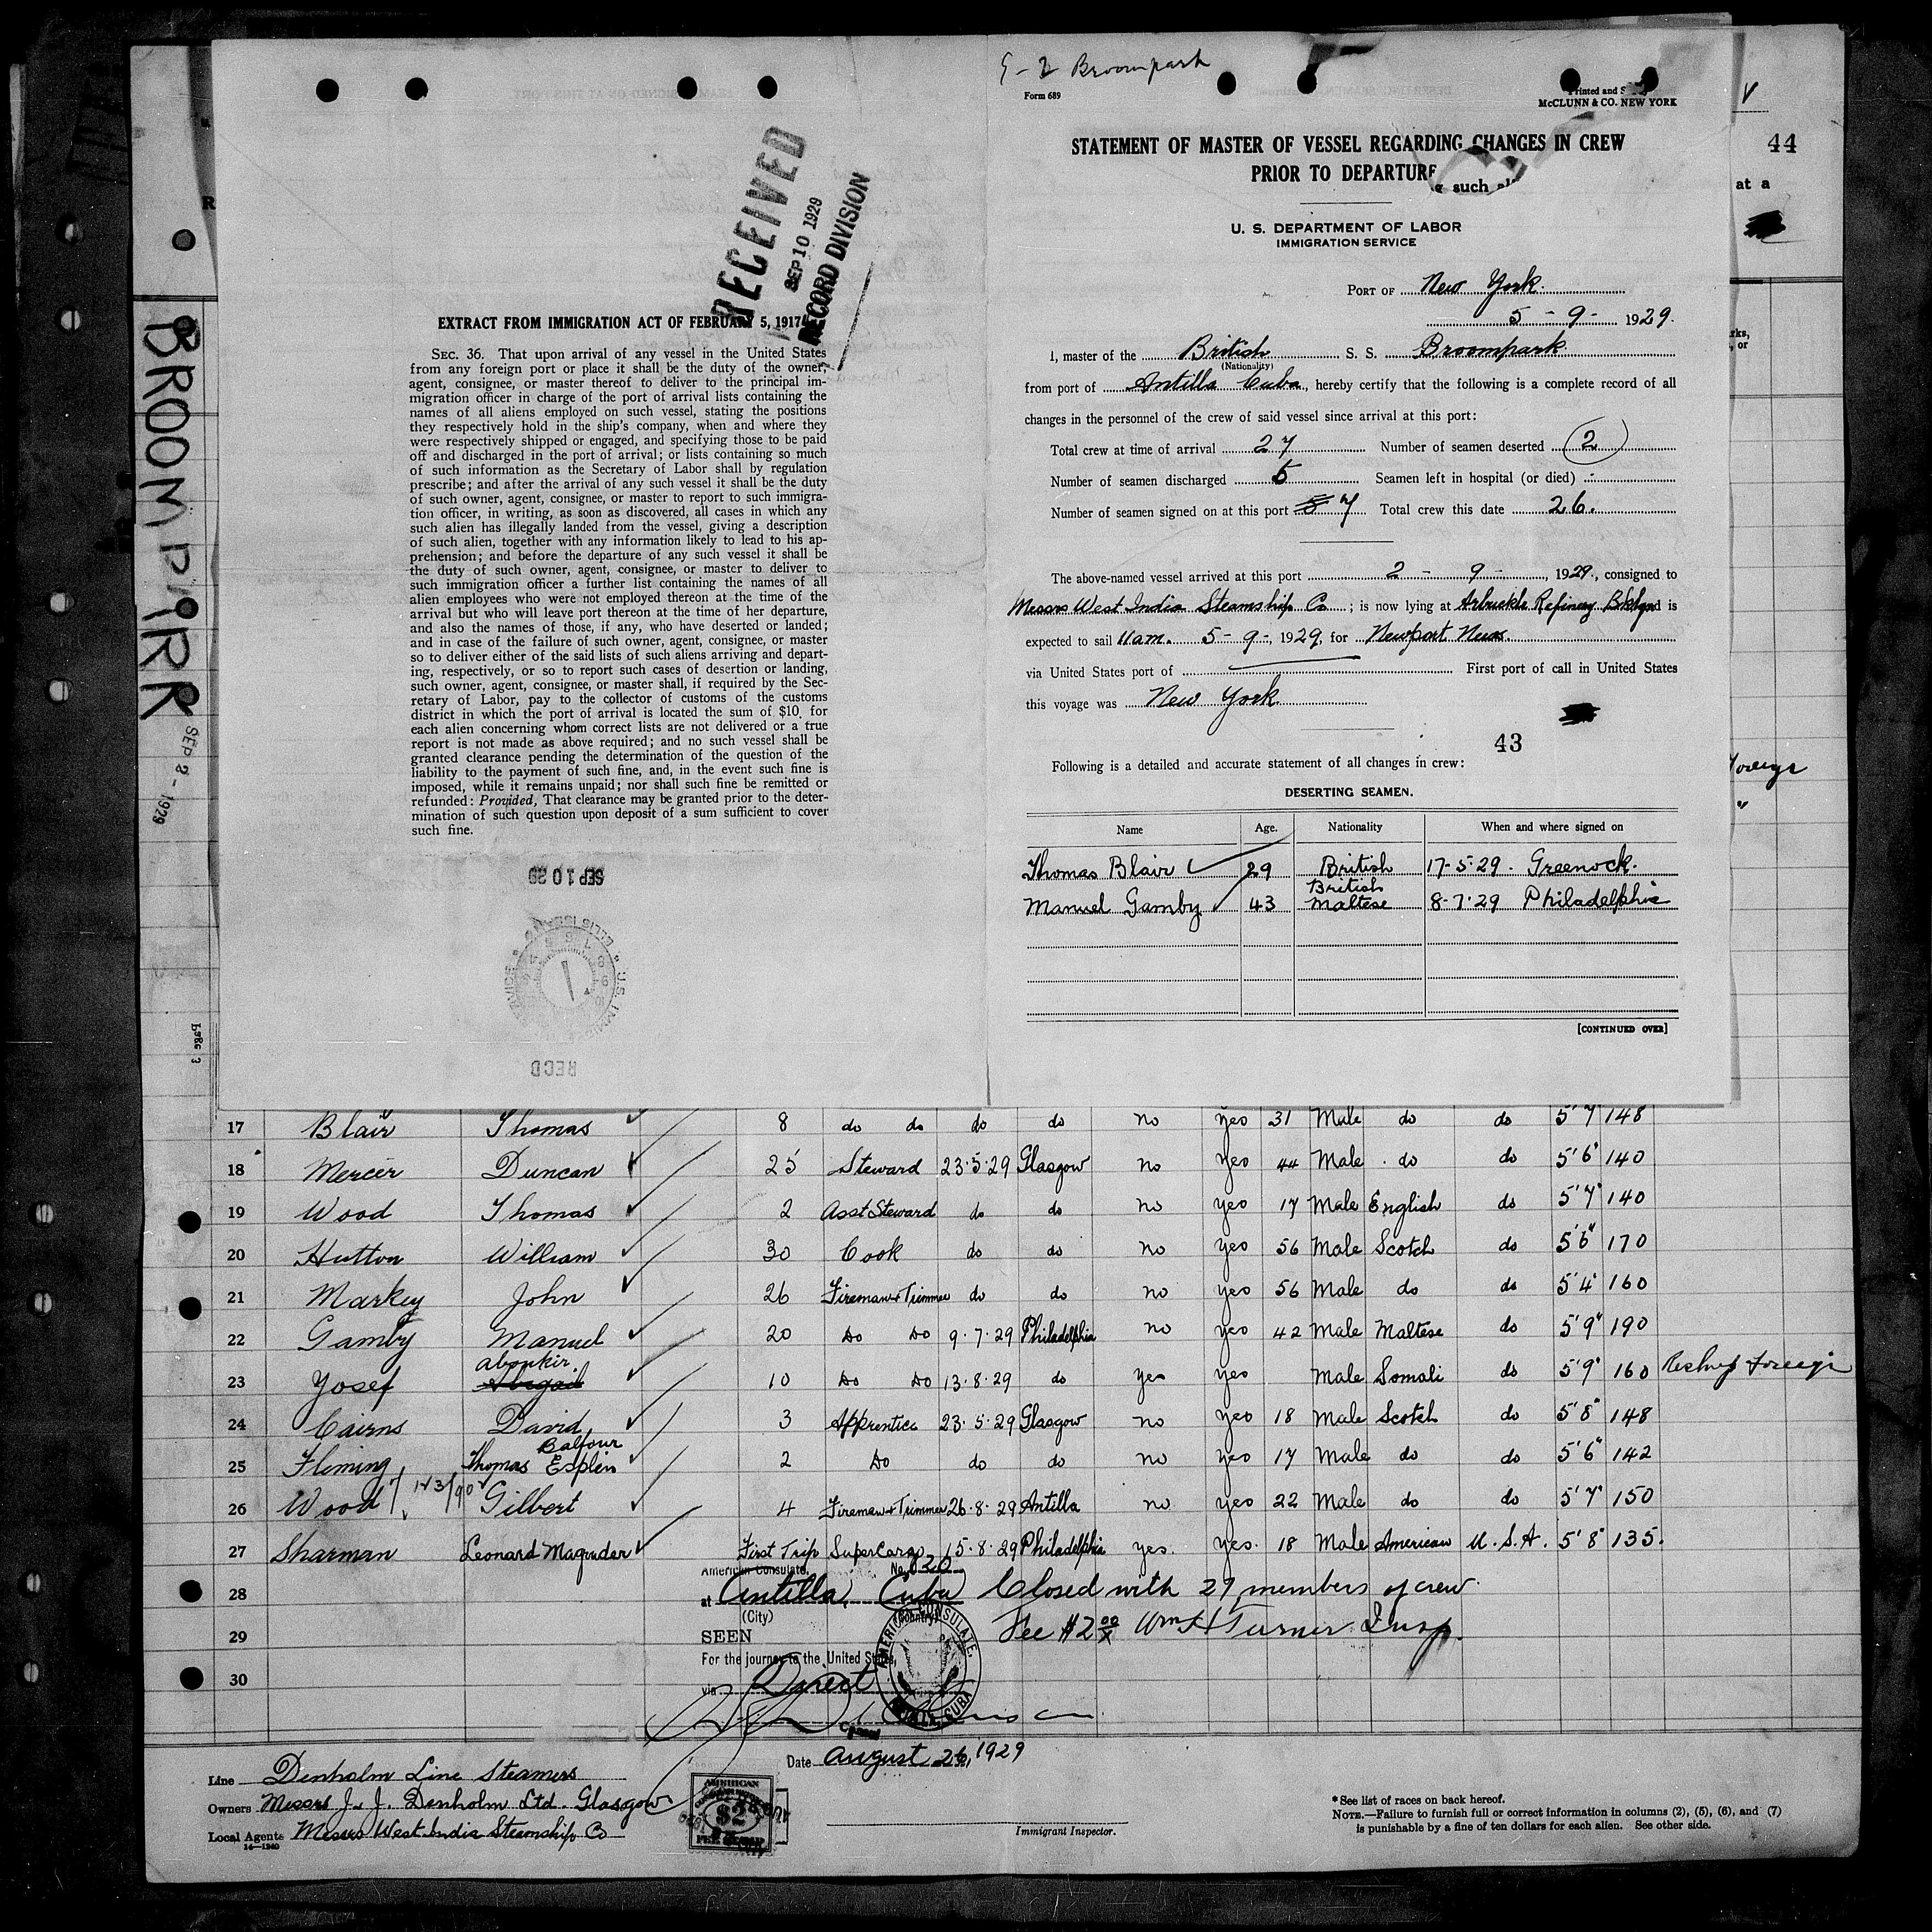 BROOMPARK
SEP 2 - 1929
page 3
RECEIVED
SEP 10 1929
RECORD DIVISION
EXTRACT FROM IMMIGRATION ACT OF FEBRUARY 5, 1917
SEC. 36. That upon arrival of any vessel in the United States
from any foreign port or place it shall be the duty of the owner,
agent, consignee, or master thereof to deliver to the principal im-
migration officer in charge of the port of arrival lists containing the
names of all aliens employed on such vessel, stating the positions
they respectively hold in the ship's company, when and where they
were respectively shipped or engaged, and specifying those to be paid
off and discharged in the port of arrival; or lists containing so much
of such information as the Secretary of Labor shall by regulation
prescribe; and after the arrival of any such vessel it shall be the duty
of such owner, agent, consignee, or master to report to such immigra-
tion officer, in writing, as soon as discovered, all cases in which any
such alien has illegally landed from the vessel, giving a description
of such alien, together with any information likely to lead to his ap-
prehension; and before the departure of any such vessel it shall be
the duty of such owner, agent, consignee, or master to deliver to
such immigration officer a further list containing the names of all
alien employees who were not employed thereon at the time of the
arrival but who will leave port thereon at the time of her departure,
and also the names of those, if any, who have deserted or landed;
and in case of the failure of such owner, agent, consignee, or master
so to deliver either of the said lists of such aliens arriving and depart-
ing, respectively, or so to report such cases of desertion or landing,
such owner, agent, consignee, or master shall, if required by the Sec-
retary of Labor, pay to the collector of customs of the customs
district in which the port of arrival is located the sum of $10 for
each alien concerning whom correct lists are not delivered or a true
report is not made as above required; and no such vessel shall be
granted clearance pending the determination of the question of the
liability to the payment of such fine, and, in the event such fine is
imposed, while it remains unpaid; nor shall such fine be remitted or
refunded: Provided, That clearance may be granted prior to the deter-
mination of such question upon deposit of a sum sufficient to cover
such fine.
SEP 10 29
RECD
9-2 Broompark
Form 689
Printed and
McCLUNN & CO. NEW YORK
STATEMENT OF MASTER OF VESSEL REGARDING CHANGES IN CREW
PRIOR TO DEPARTURE
such
U. S. DEPARTMENT OF LABOR
IMMIGRATION SERVICE
PORT OF New York.
5 - 9 - 1929.
I, master of the British S. S. Broompark
(Nationality)
from port of Antilla Cuba, hereby certify that the following is a complete record of all
changes in the personnel of the crew of said vessel since arrival at this port:
Total crew at time of arrival 27 Number of seamen deserted 2
Number of seamen discharged 5 Seamen left in hospital (or died) -
Number of seamen signed on at this port 7 Total crew this date 26.
The above-named vessel arrived at this port 2 - 9 - , 1929, consigned to
Messrs West India Steamship Co ; is now lying at Arbuckle Refinery Bklyn and is
expected to sail 11 am. 5 - 9 -, 1929, for Newport News
via United States port of First port of call in United States
this voyage was New York
43
Following is a detailed and accurate statement of all changes in crew:
DESERTING SEAMEN.
Name Age. Nationality When and where signed on
Thomas Blair 29 British 17-5-29. Greenock.
Manuel Gamby 43 British Maltese 8-7-29 Philadelphia
[CONTINUED OVER]
44
at a
rks,
, or
foreign
"
17 Blair Thomas 8 do do do do no yes 31 Male do do 5'7" 148
18 Mercer Duncan 25 Steward 23.5.29 Glasgow no yes 44 Male do do 5'6" 140
19 Wood Thomas 2 Asst Steward do do no yes 17 Male English do 5'7" 140
20 Hutton William 30 Cook do do no yes 56 Male Scotch do 5'6" 170
21 Markey John 26 Fireman+Trimmer do do no yes 56 Male do do 5'4" 160
22 Gamby Manuel 20 Do Do 9.7.29 Philadelphia no yes 42 Male Maltese do 5'9" 190
23 Yosef Aboukir. Abigail 10 Do Do 13.8.29 do yes yes Male Somali do 5'9" 160 Reship foreign
24 Cairns David 3 Apprentice 23.5.29 Glasgow no yes 18 Male Scotch do 5'8" 148
25 Fleming Thomas Balfour Esplin 2 Do do do no yes 17 Male do do 5'6" 142
26 Wood Gilbert 4 Fireman+Trimmer 26.8.29 Antilla no yes 22 Male do do 5'7" 150
27 Sharman Leonard Magruder First Trip SuperCargo 15.8.29 Philadelphia yes. yes. 18 Male American U.S.A. 5'8" 135.
28
29
30
American Consulate, No. 820
at Antilla, Cuba Closed with 27 members of crew.
(City) (Country)
SEEN Fee $2 00/x Wm H Turner Insp.
For the journey to the United States,
via Direct
Consul
AMERICAN CONSULATE, ANTILLA, CUBA
Date August 26, 1929
Line Denholm Line Steamers
Owners Messrs J. J. Denholm Ltd. Glasgow
Local Agents Messrs West India Steamship Co
14—1240
AMERICAN
$2
FEE STAMP
Immigrant Inspector.
* See list of races on back hereof.
NOTE.—Failure to furnish full or correct information in columns (2), (5), (6), and (7)
is punishable by a fine of ten dollars for each alien. See other side.